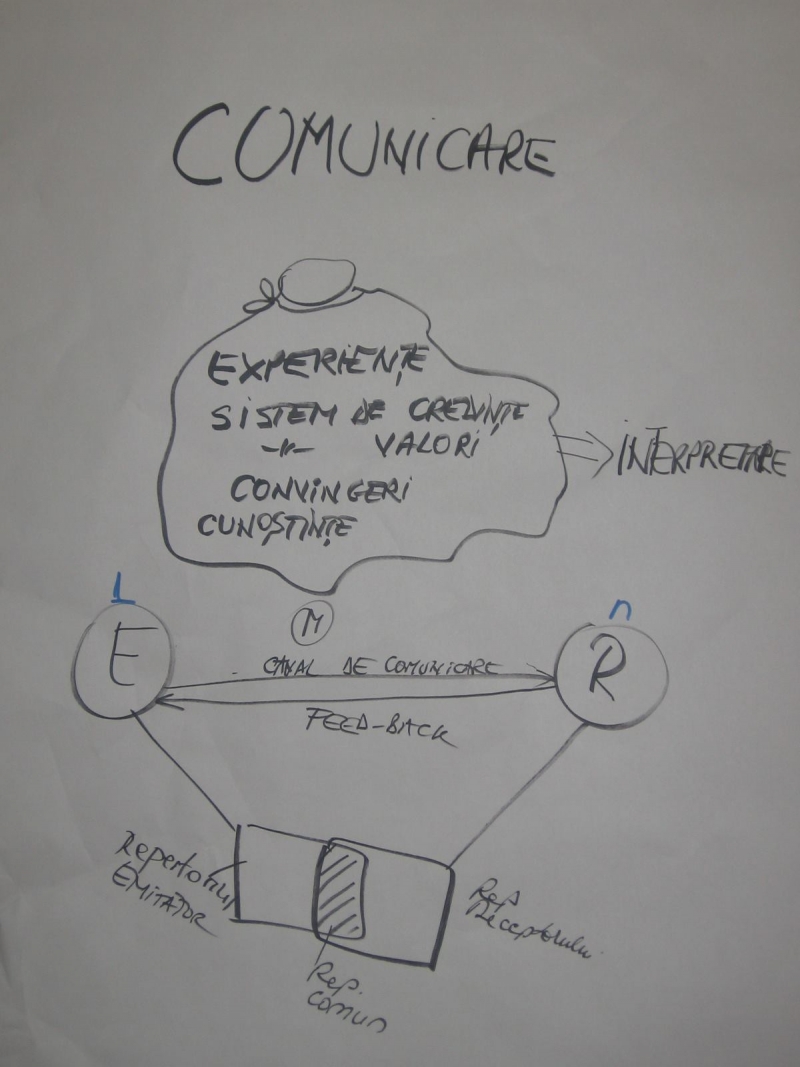 COMUNICARE
EXPERIENȚE
SISTEM DE CREDINȚE
-//- VALORI
CONVINGERI
CUNOȘTINȚE
INTERPRETARE
1
n
M
E
R
CANAL DE COMUNICARE
FEED-BACK
Repertoriul
EMITATOR
Rep.
Receptorului
Rep.
comun